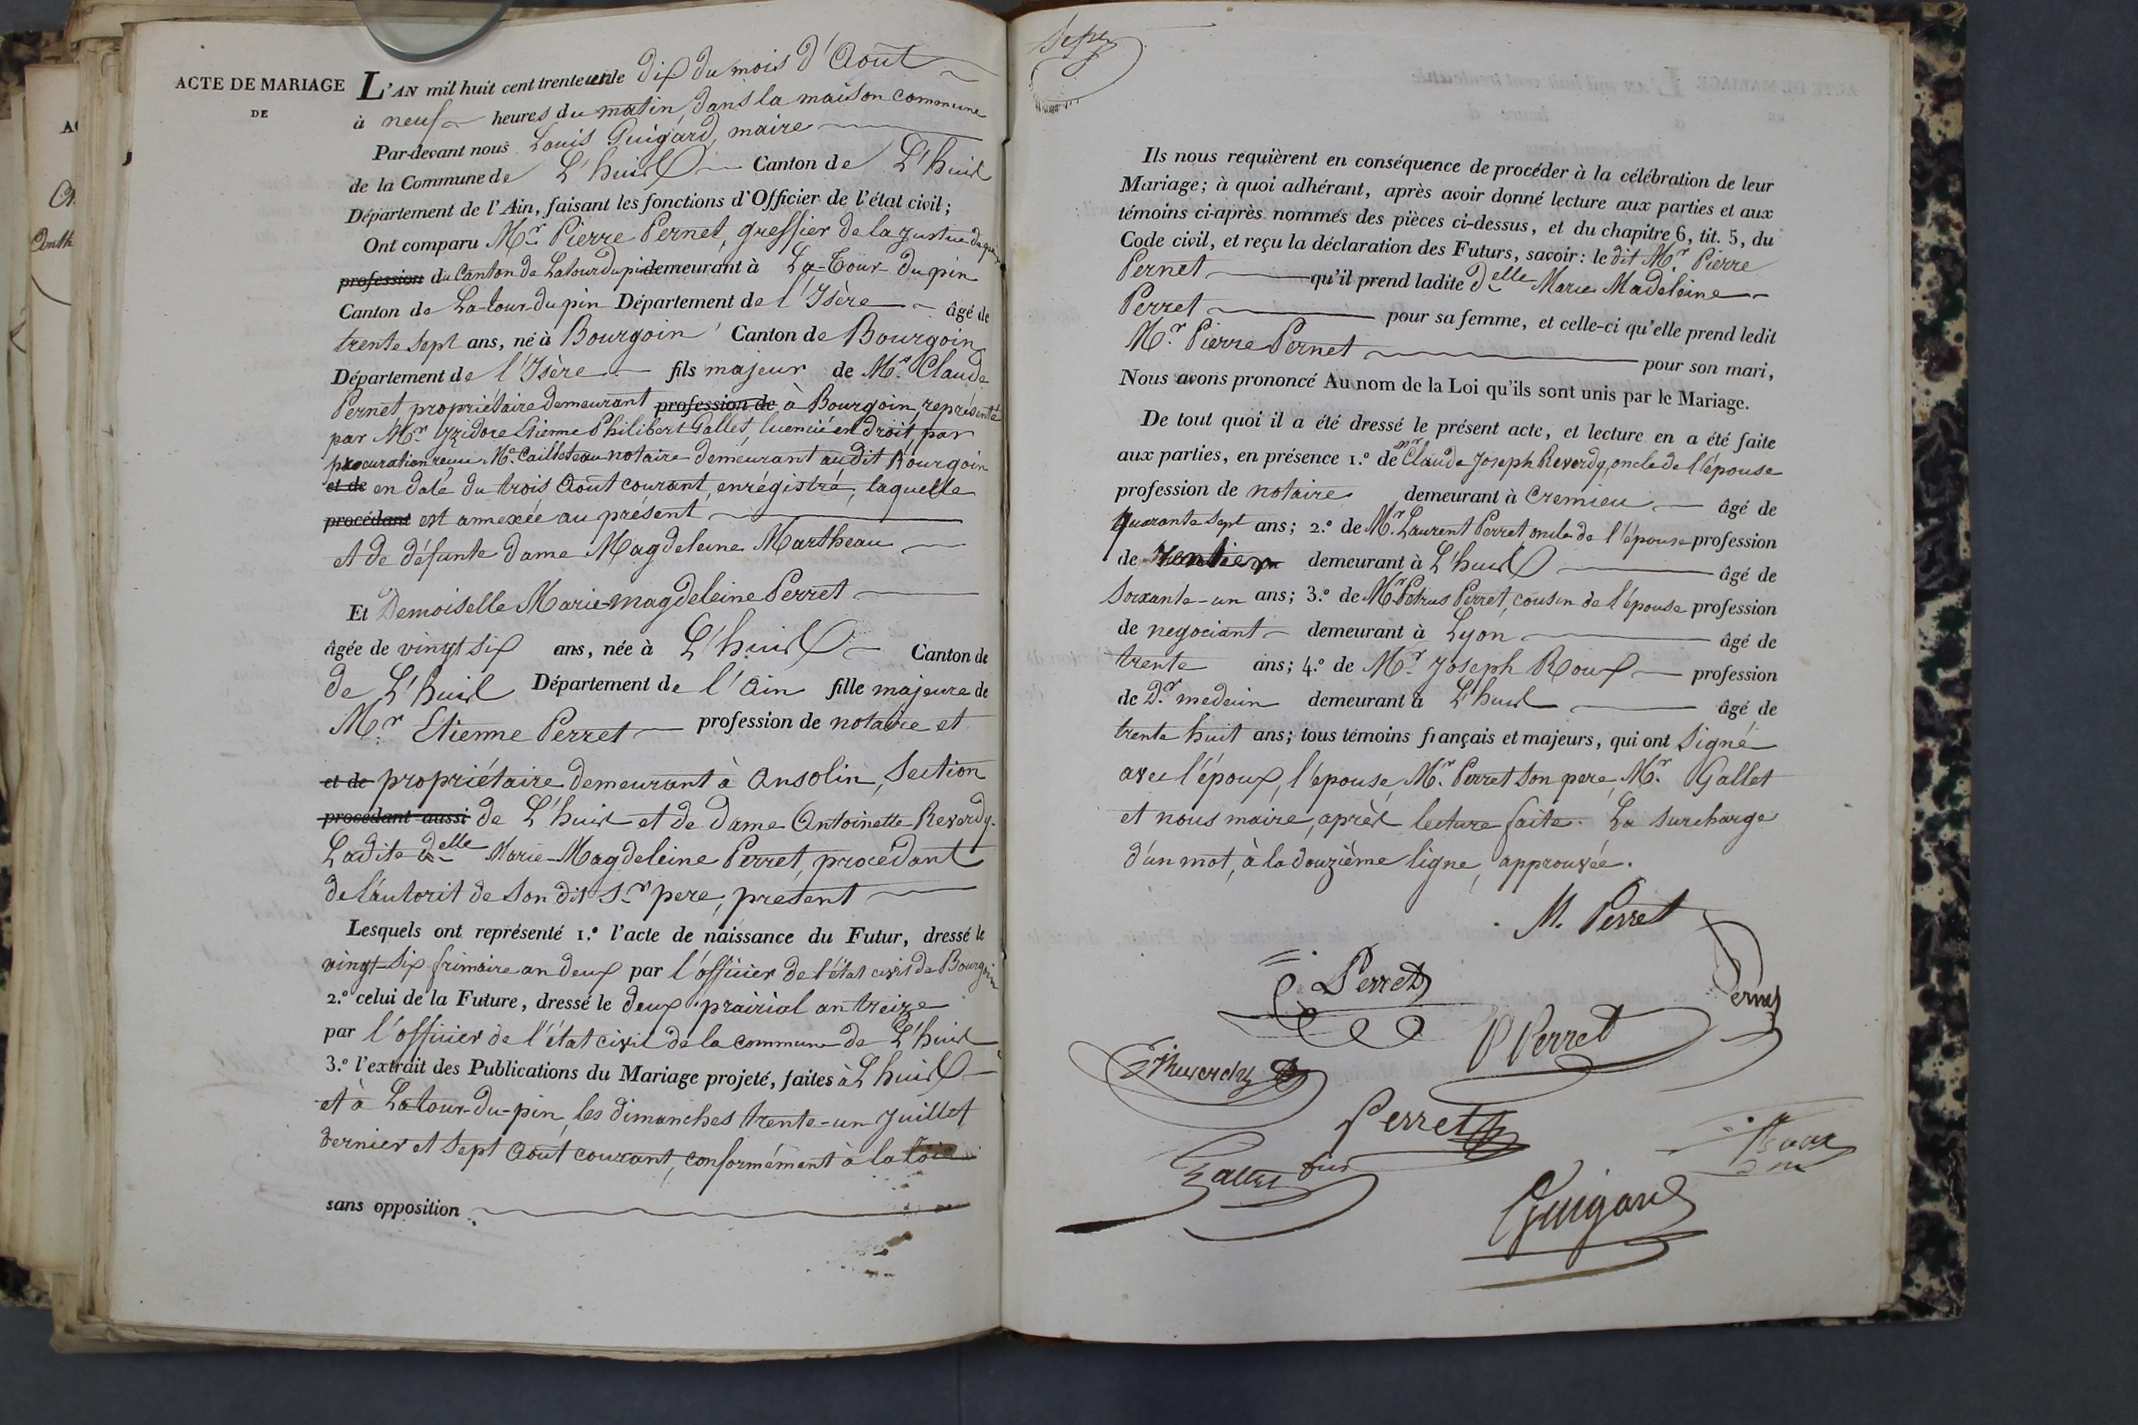 ACTE DE MARIAGE
DE
L'AN mil huit cent trente un le dix du mois d'Août
à neuf heures du matin, dans la maison commune
Par-devant nous Louis Guigard, maire
de la Commune de L'huis Canton de L'huis
Département de l'Ain, faisant les fonctions d'Officier de l'état civil;
Ont comparu Mr. Pierre Pernet, greffier de la justice de paix
profession du Canton de Latourdupin demeurant à La-Tour-du pin
Canton de La-tour-du pin Département de l'Isère âgé de
trente sept ans, né à Bourgoin Canton de Bourgoin
Département de l'Isère fils majeur de Mr. Claude
Pernet, propriétaire demeurant profession de à Bourgoin, représenté
par Mr. Izidore Etienne Philibert Gallet, licencié en droit, par
procuration reçue Me. Cailleteau notaire demeurant audit Bourgoin
et de en date du trois Août courant, enrégistré, laquelle
procédant est annexée au présent
et de défunte dame Magdeleine Martheau
Et Demoiselle Marie-Magdeleine Perret
âgée de vingt six ans, née à L'huis Canton de
de L'huis Département de l'Ain fille majeure de
Mr. Etienne Perret profession de notaire et
et de propriétaire demeurant à Ansolin, Section
procédant aussi de L'huis et de dame Antoinette Reverdy.
Ladite delle Marie-Magdeleine Perret, procédant
de l'autorit de son dit Sr. pere, présent
Lesquels ont représenté 1.º l'acte de naissance du Futur, dressé le
vingt-six frimaire an deux par l'officier de l'état civil de Bourgoin
2.º celui de la Future, dressé le deux prairial an treize
par l'officier de l'état civil de la commune de L'huis
3.º l'extrait des Publications du Mariage projeté, faites à L'huis
et à Latour-du-pin, les dimanches trente-un Juillet
dernier et sept Août courant, conformément à la loi
sans opposition
Ils nous requièrent en conséquence de procéder à la célébration de leur
Mariage; à quoi adhérant, après avoir donné lecture aux parties et aux
témoins ci-après nommés des pièces ci-dessus, et du chapitre 6, tit. 5, du
Code civil, et reçu la déclaration des Futurs, savoir: le dit Mr. Pierre
Pernet qu'il prend ladite delle Marie Madeleine
Perret pour sa femme, et celle-ci qu'elle prend ledit
Mr. Pierre Pernet pour son mari,
Nous avons prononcé Au nom de la Loi qu'ils sont unis par le Mariage.
De tout quoi il a été dressé le présent acte, et lecture en a été faite
aux parties, en présence 1.º de Mr Claude Joseph Reverdy, oncle de l'épouse
profession de notaire demeurant à Cremieu âgé de
quarante sept ans; 2.º de Mr. Laurent Perret oncle de l'épouse profession
de rentier demeurant à L'huis âgé de
soixante-un ans; 3.º de Mr Petrus Perret, cousin de l'épouse profession
de negociant demeurant à Lyon âgé de
trente ans; 4.º de Mr. Joseph Roux profession
de Dr. medecin demeurant à L'huis âgé de
trente huit ans; tous témoins français et majeurs, qui ont signé
avec l'époux, l'épouse, Mr. Perret son pere, Mr. Gallet
et nous maire, après lecture faite. La surcharge
d'un mot, à la douzième ligne, approuvée.
M. Perret
Perret
Pernet
P Perret
Reverdy
Perret
Roux
Gallet
Guigard